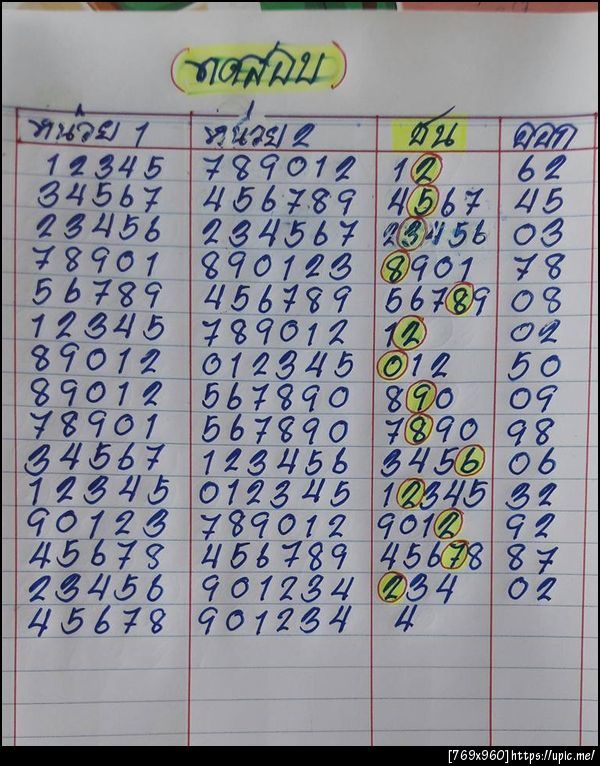 ทดสอบ
หน่วย 1 หน่วย 2 ชน ออก
12345 789012 12 62
34567 456789 4567 45
23456 234567 23456 03
78901 890123 8901 78
56789 456789 56789 08
12345 789012 12 02
89012 012345 012 50
89012 567890 890 09
78901 567890 7890 98
34567 123456 3456 06
12345 012345 12345 32
90123 789012 9012 92
45678 456789 45678 87
23456 901234 234 02
45678 901234 4
[769x960]https://upic.me/